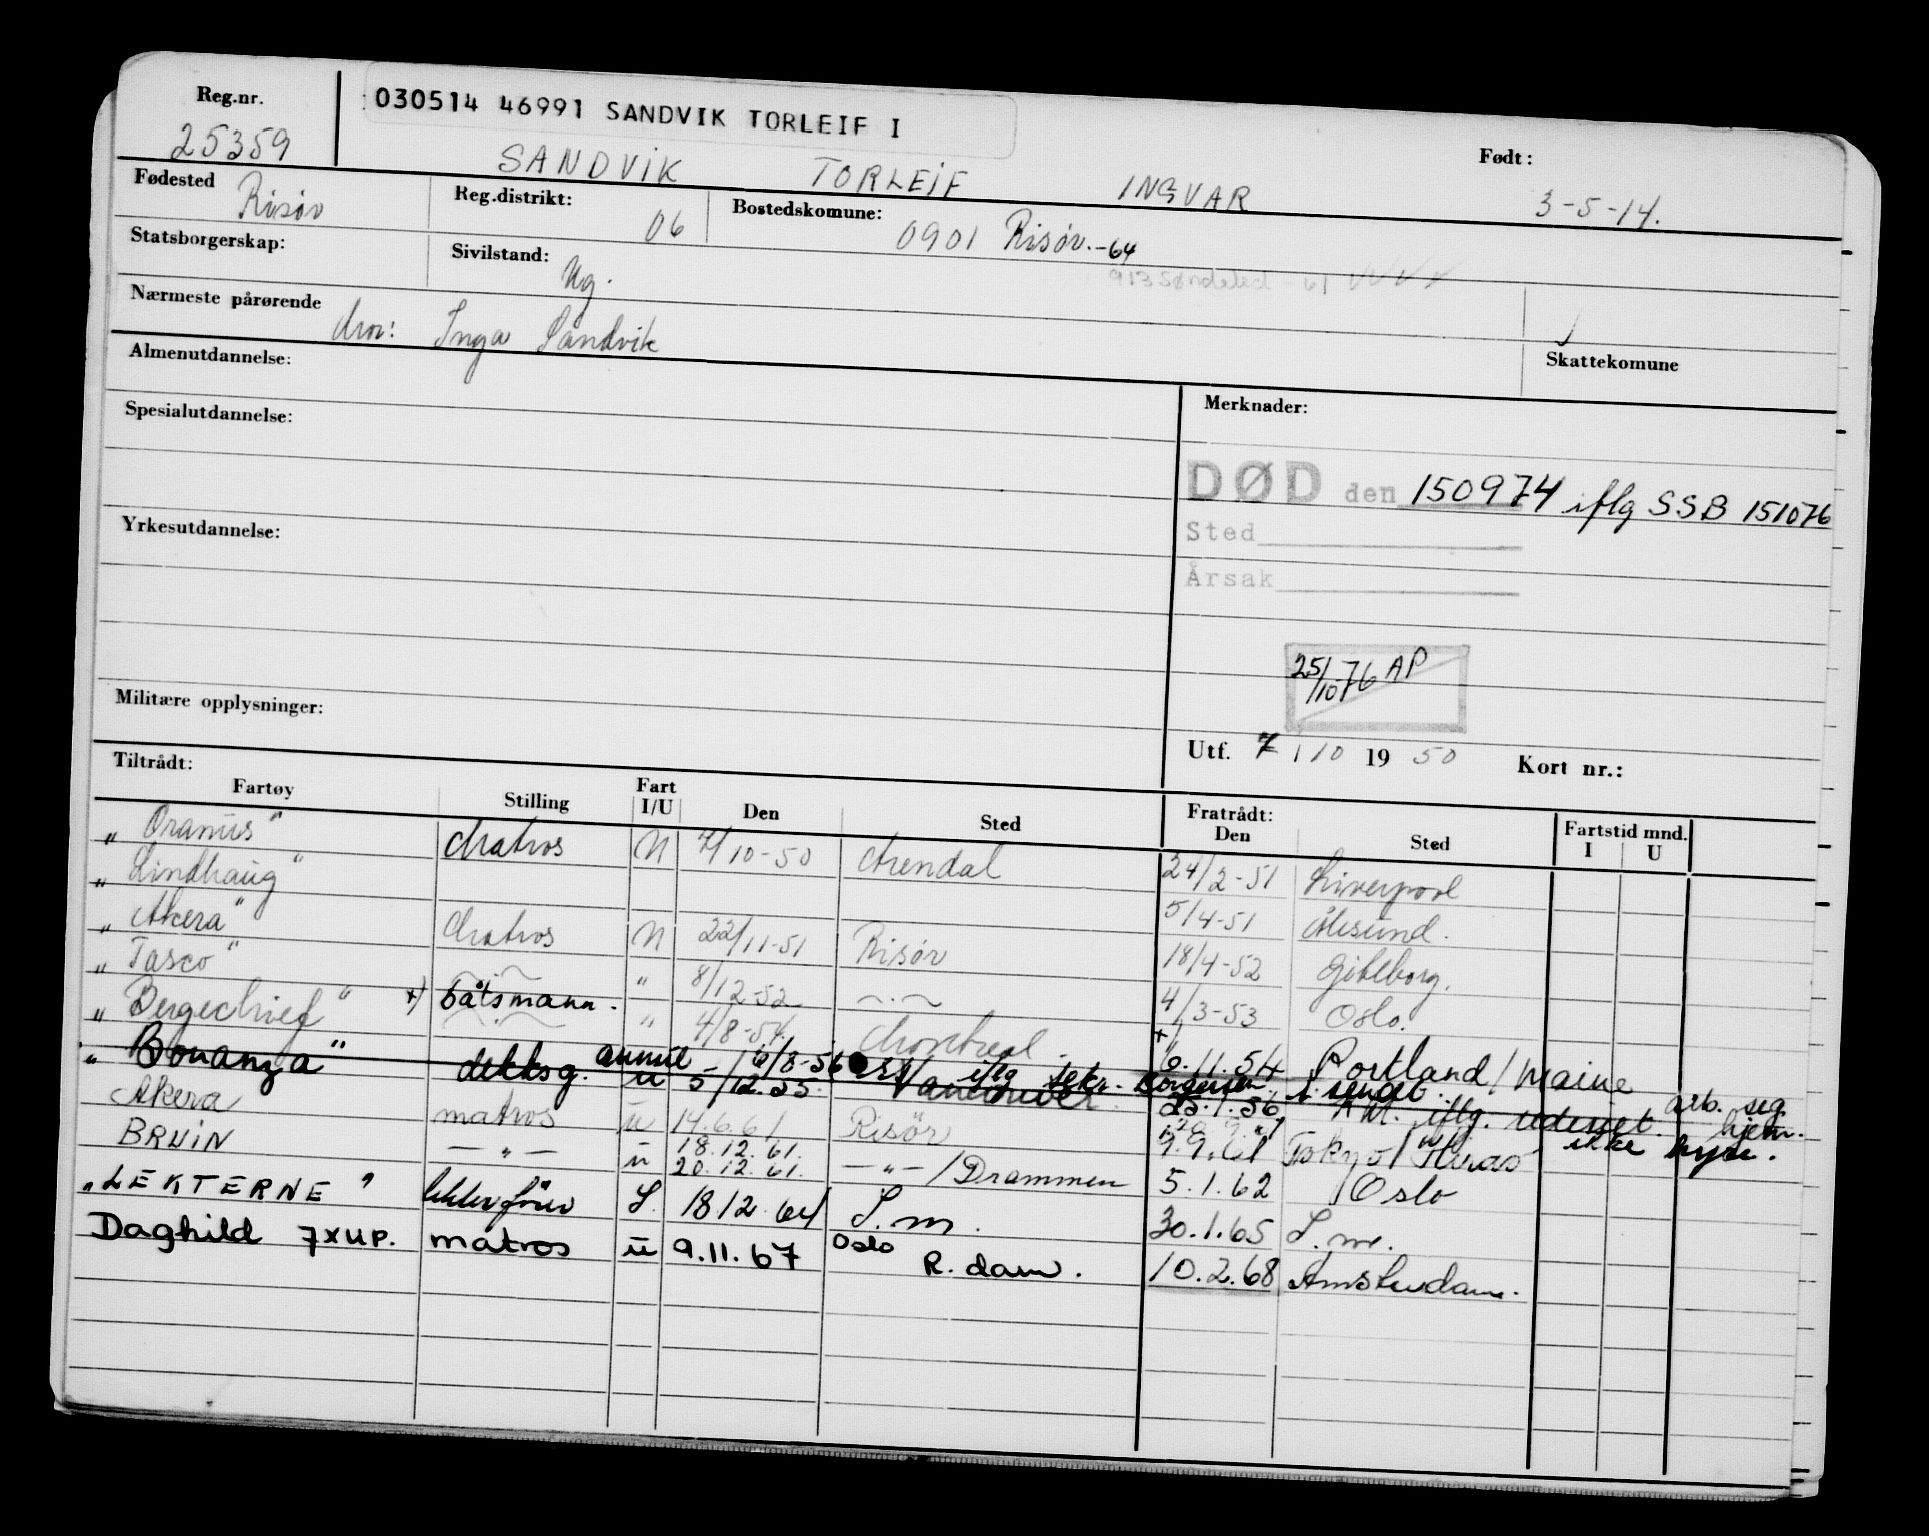 Reg.nr.
25359
030514 46991 SANDVIK TORLEIF I
SANDVIK TORLEIF INGVAR
Født:
3-5-14.
Fødested
Risør
Reg.distrikt:
06
Bostedskomune:
0901 Risør.-64
913 Søndeled - 61
Statsborgerskap:
Sivilstand:
Ug.
Nærmeste pårørende
Mor: Inga Sandvik
Skattekomune
Almenutdannelse:
Merknader:
Spesialutdannelse:
DØD den 150974 iflg SSB 151076
Sted
Årsak
Yrkesutdannelse:
25/10-76 AP
Militære opplysninger:
Utf. 7 / 10 19 50 Kort nr.:
Tiltrådt:
Fartøy Stilling Fart I/U Den Sted Fratrådt: Den Sted Fartstid mnd. I U
"Oranus" Matros U 7/10-50 Arendal 24/2-51 Liverpool
"Lindhaug" 5/4-51 Ålesund.
"Akera" Matros U 22/11-51 Risør 18/4-52 Gøteborg.
"Tasco" -"- " 8/12-52 -"- 4/3-53 Oslo.
"Bergechief" x) båtsmann. " 4/8-54. Montreal x) 6.11.54 Portland/Maine
annul 6/8-56 iflg sekr. Borgersen
"Bonanza" dekksg. u 5/12.55 Vancouver. 25.1.56 iflg. rederiet arb. seg hjem. ikke hyre.
Akera matros u 14.6.61 Risør 9.9.61 Tokyo/
BRUIN -"- u 18.12.61. 20.12.61. -"-/Drammen 5.1.62 Oslo
"LEKTERNE" lekterfører L. 18 12 64 L.m. 30.1.65 L.m.
Daghild 7XUP. matros u 9.11.67 Oslo R.dam. 10.2.68 Amsterdam.